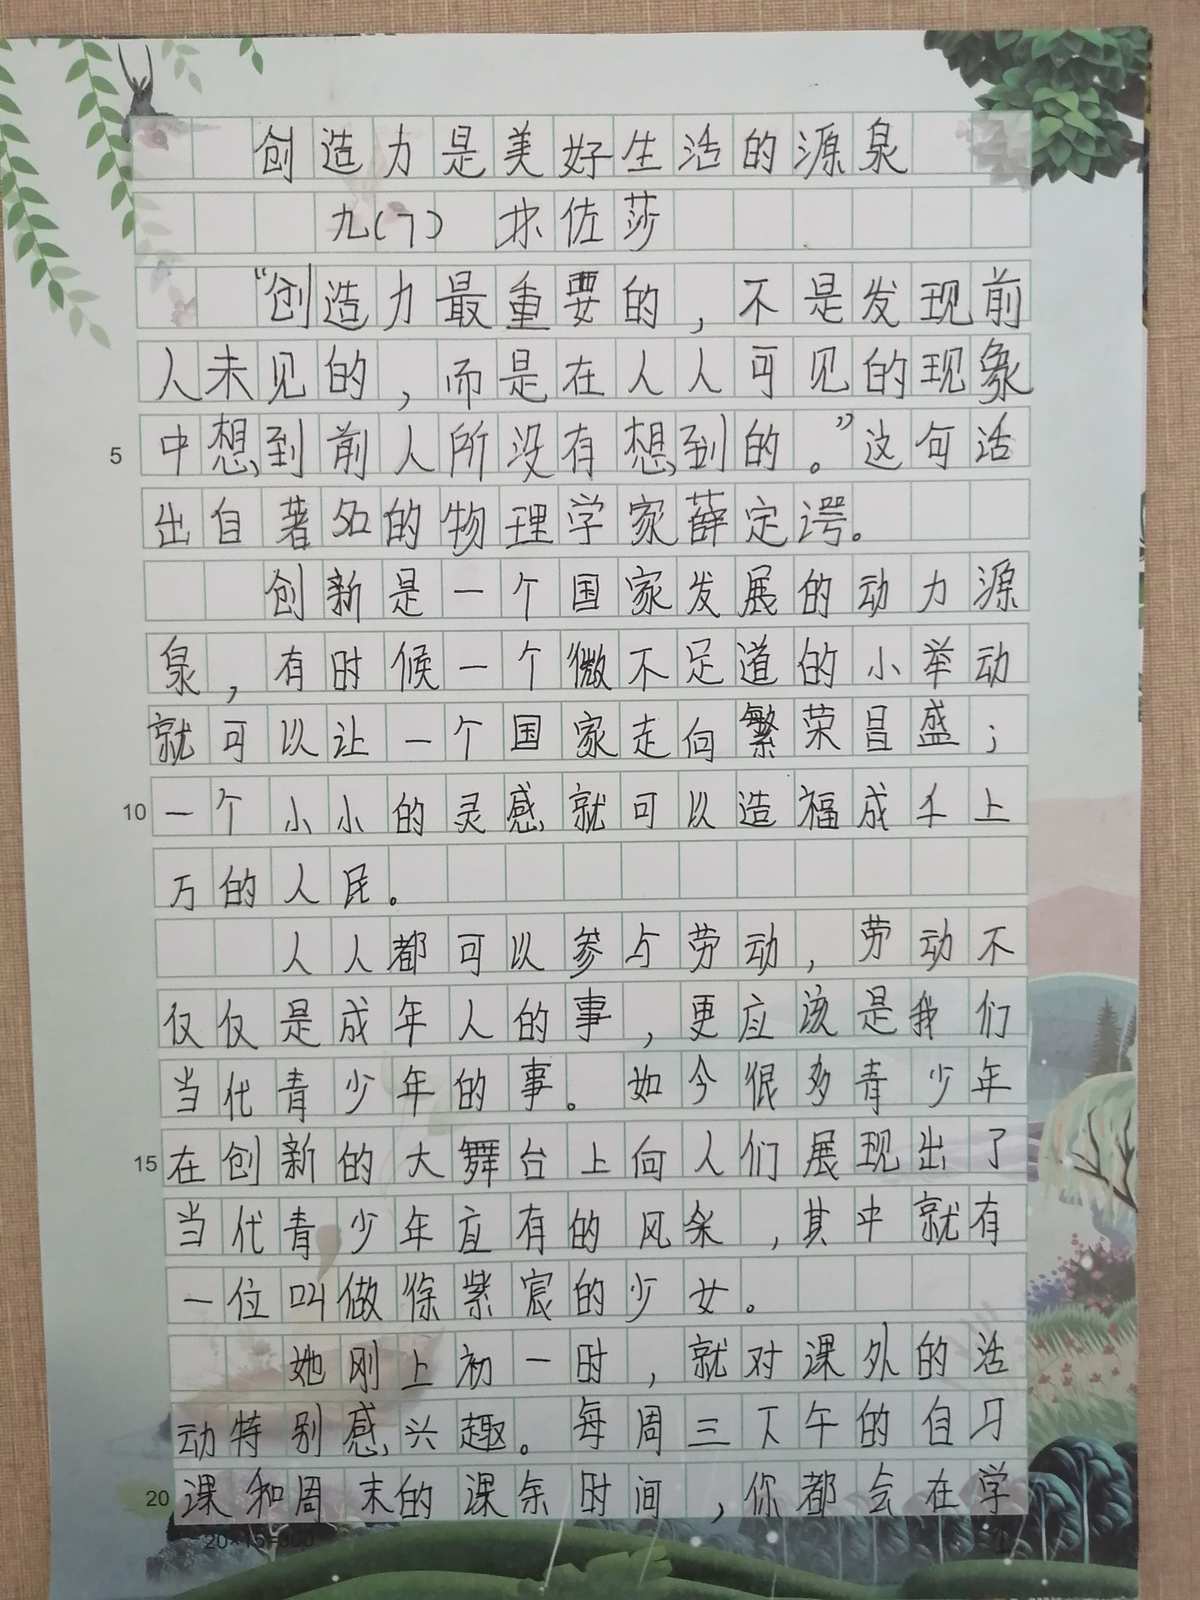 创造力是美好生活的源泉
九(7) 林佐莎
“创造力最重要的，不是发现前
人未见的，而是在人人可见的现象
中想到前人所没有想到的。”这句话
5
出自著名的物理学家薛定谔。
创新是一个国家发展的动力源
泉，有时候一个微不足道的小举动
就可以让一个国家走向繁荣昌盛；
10 一个小小的灵感就可以造福成千上
万的人民。
人人都可以参与劳动，劳动不
仅仅是成年人的事，更应该是我们
当代青少年的事。如今很多青少年
15 在创新的大舞台上向人们展现出了
当代青少年应有的风采，其中就有
一位叫做徐紫宸的少女。
她刚上初一时，就对课外的活
动特别感兴趣。每周三下午的自习
20 课和周末的课余时间，你都会在学
20×15=300
1